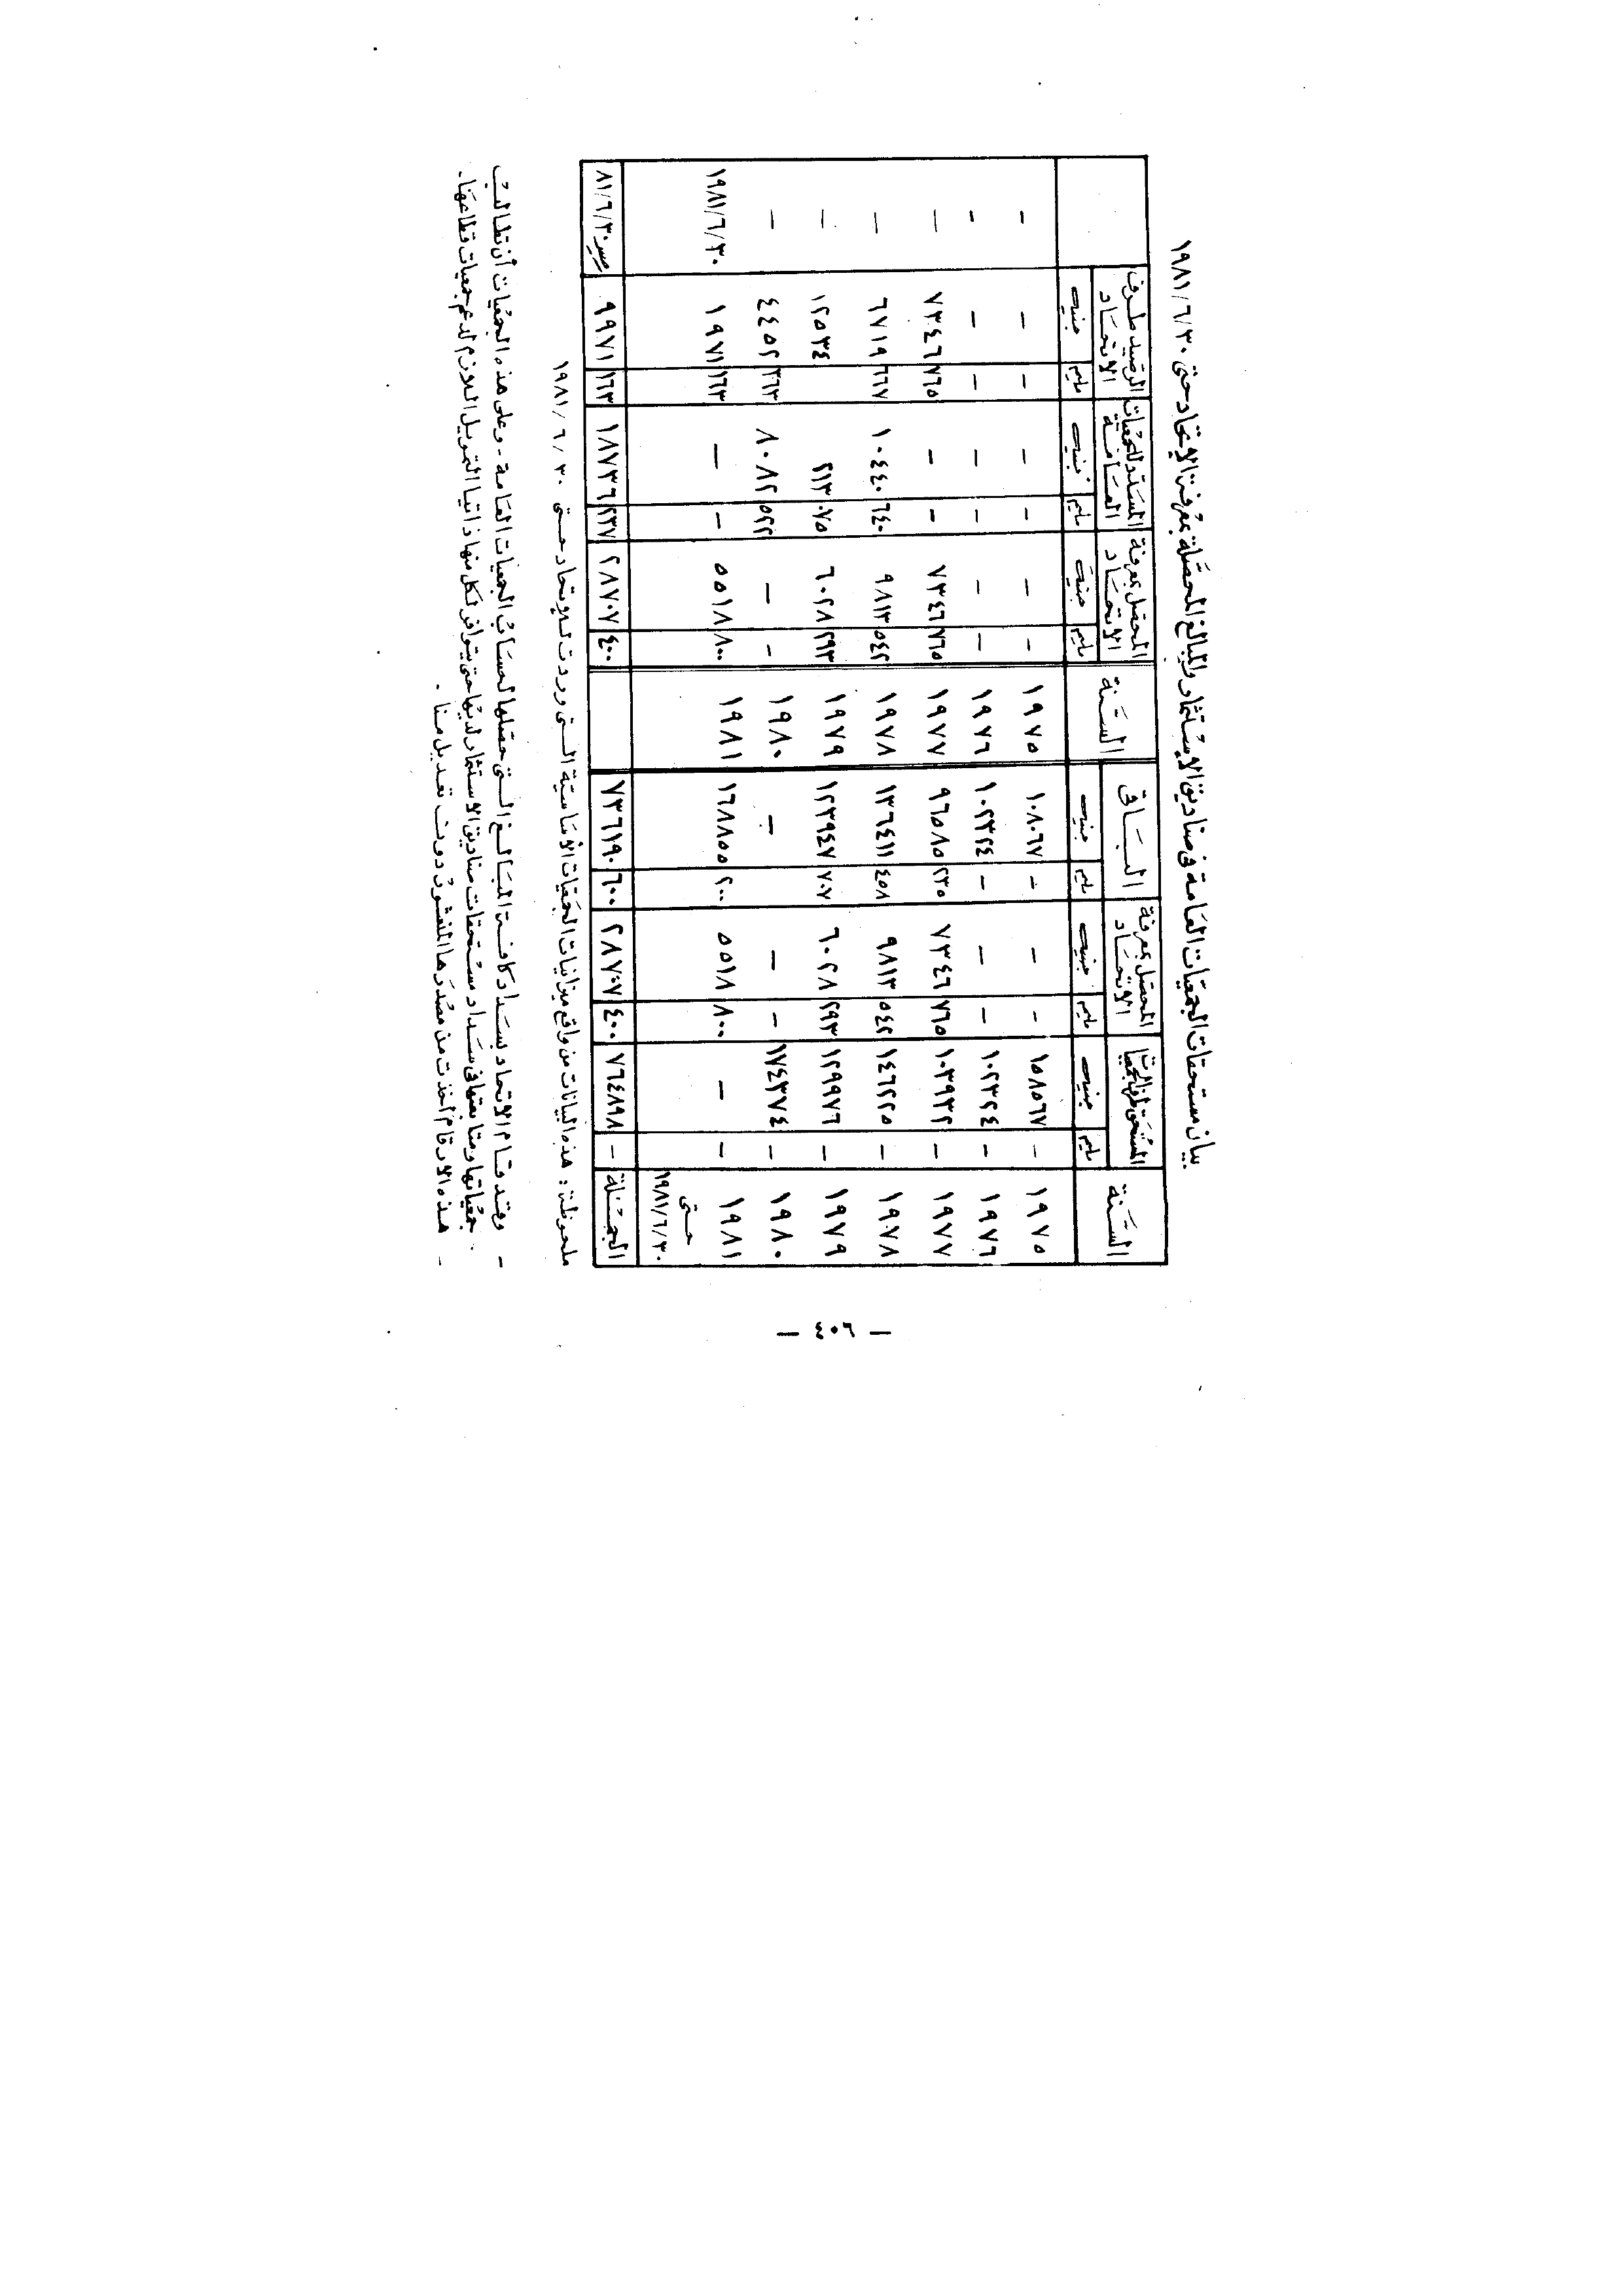 بيان مستحقات الجمعيات العامة فى صناديق الاستثمار والمبالغ المحصلة بمعرفة الاتحاد حتى ١٩٨١/٦/٣٠
السنة | المستحق طرف الجمعيات | المحصل بمعرفة الاتحاد | الباقى | السنة | المحصل بمعرفة الاتحاد | المسدد للجمعيات العامة | الرصيد طرف الاتحاد
مليم | جنيه | مليم | جنيه | مليم | جنيه | مليم | جنيه | مليم | جنيه | مليم | جنيه
١٩٧٥ | – | ١٥٨٥٦٧ | – | – | – | ١٠٨٠٦٧ | ١٩٧٥ | – | – | – | – | – | – | –
١٩٧٦ | – | ١٠٢٣٢٤ | – | – | – | ١٠٢٣٢٤ | ١٩٧٦ | – | – | – | – | – | – | –
١٩٧٧ | – | ١٠٣٩٣٢ | ٧٦٥ | ٧٣٤٦ | ٢٣٥ | ٩٦٥٨٥ | ١٩٧٧ | ٧٦٥ | ٧٣٤٦ | – | – | ٧٦٥ | ٧٣٤٦ | –
١٩٧٨ | – | ١٤٦٢٢٥ | ٥٤٢ | ٩٨١٣ | ٤٥٨ | ١٣٦٤١١ | ١٩٧٨ | ٥٤٢ | ٩٨١٣ | ٦٤٠ | ١٠٤٤٠ | ٦٦٧ | ٦٧١٩ | –
١٩٧٩ | – | ١٢٩٩٧٦ | ٢٩٣ | ٦٠٢٨ | ٧٠٧ | ١٢٣٩٤٧ | ١٩٧٩ | ٢٩٣ | ٦٠٢٨ | ٠٧٥ | ٢١٣ | ١٢٥٣٤ | –
١٩٨٠ | – | ١٧٤٣٧٤ | – | – | – | ١٩٨٠ | – | – | ٥٢٢ | ٨٠٨٢ | ٣٦٣ | ٤٤٥٢ | –
١٩٨١ | – | – | ٨٠٠ | ٥٥١٨ | ٢٠٠ | ١٦٨٨٥٥ | ١٩٨١ | ٨٠٠ | ٥٥١٨ | – | – | ١٦٣ | ١٩٧١ | ١٩٨١/٦/٣٠
حتى
١٩٨١/٦/٣٠
الجملة | – | ٧٦٤٨٩٨ | ٤٠٠ | ٢٨٧٠٧ | ٦٠٠ | ٧٣٦١٩٠ | ٤٠٠ | ٢٨٧٠٧ | ٢٣٧ | ١٨٧٣٦ | ١٦٣ | ٩٩٧١ | ٨١/٦/٣٠
ملحوظة : هذه البيانات من واقع ميزانيات الجمعيات الأساسية التى وردت للاتحاد حتى ١٩٨١/٦/٣٠
– وقد قام الاتحاد بسداد كافة المبالغ التى حصلها لحساب الجمعيات العامة – وعلى هذه الجمعيات أن تطالب
جمعياتها ومتابعتها فى سداد مستحقات صناديق الاستثمار لديها حتى يتوافر لكل منها ذاتيا التمويل اللازم لدعم جمعيات قطاعها .
– هذه الارقام أخذت من مصدرها المنشور دون تعديل منا .
— ٤٠٦ —